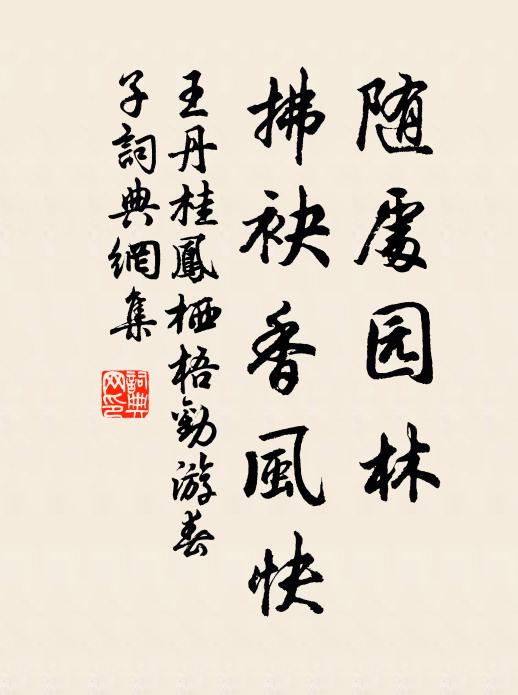 随處园林
拂袂香風快
王丹桂鳳栖梧勸游春
子詞典網集
詞典网印